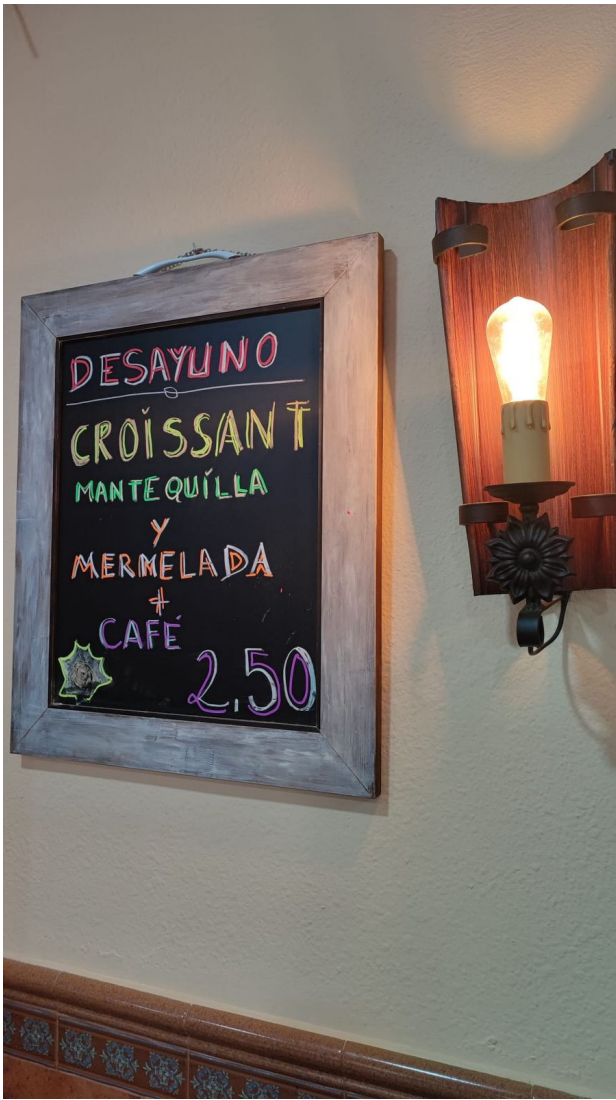 DESAYUNO
CROISSANT
MANTEQUILLA
Y
MERMELADA
+
CAFÉ
2.50